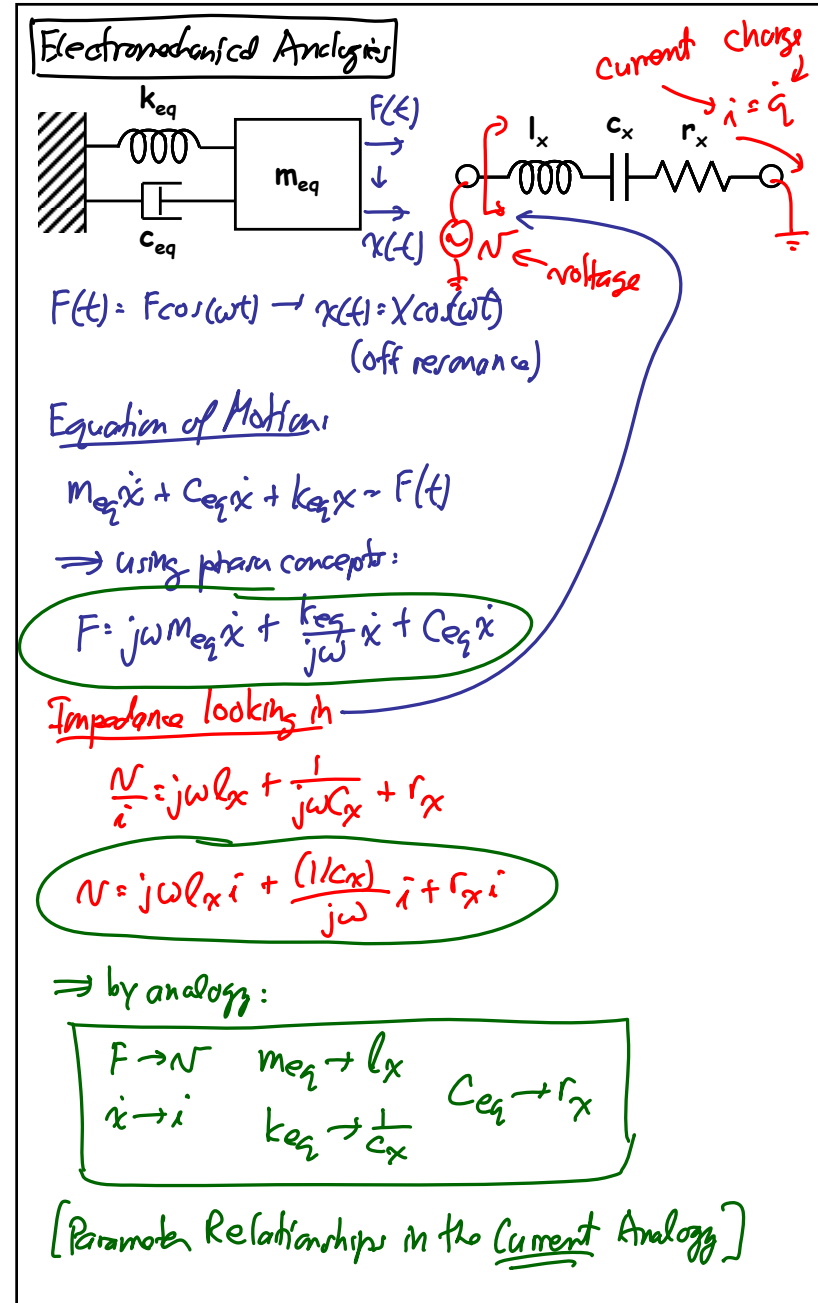 Electromechanical Analogies
current charge
i = q̇
k_eq
F(t)
l_x c_x r_x
m_eq
c_eq
x(t)
v
voltage
F(t) = F cos(ωt) → x(t) = X cos(ωt)
(off resonance)
Equation of Motion:
m_eq ẍ + c_eq ẋ + k_eq x = F(t)
⇒ using phasor concepts:
F = jω m_eq ẋ + k_eq/jω ẋ + c_eq ẋ
Impedance looking in
v/i = jω l_x + 1/(jω c_x) + r_x
v = jω l_x i + (1/c_x)/jω i + r_x i
⇒ by analogy:
F → v m_eq → l_x
c_eq → r_x
ẋ → i k_eq → 1/c_x
[Parameter Relationships in the Current Analogy]